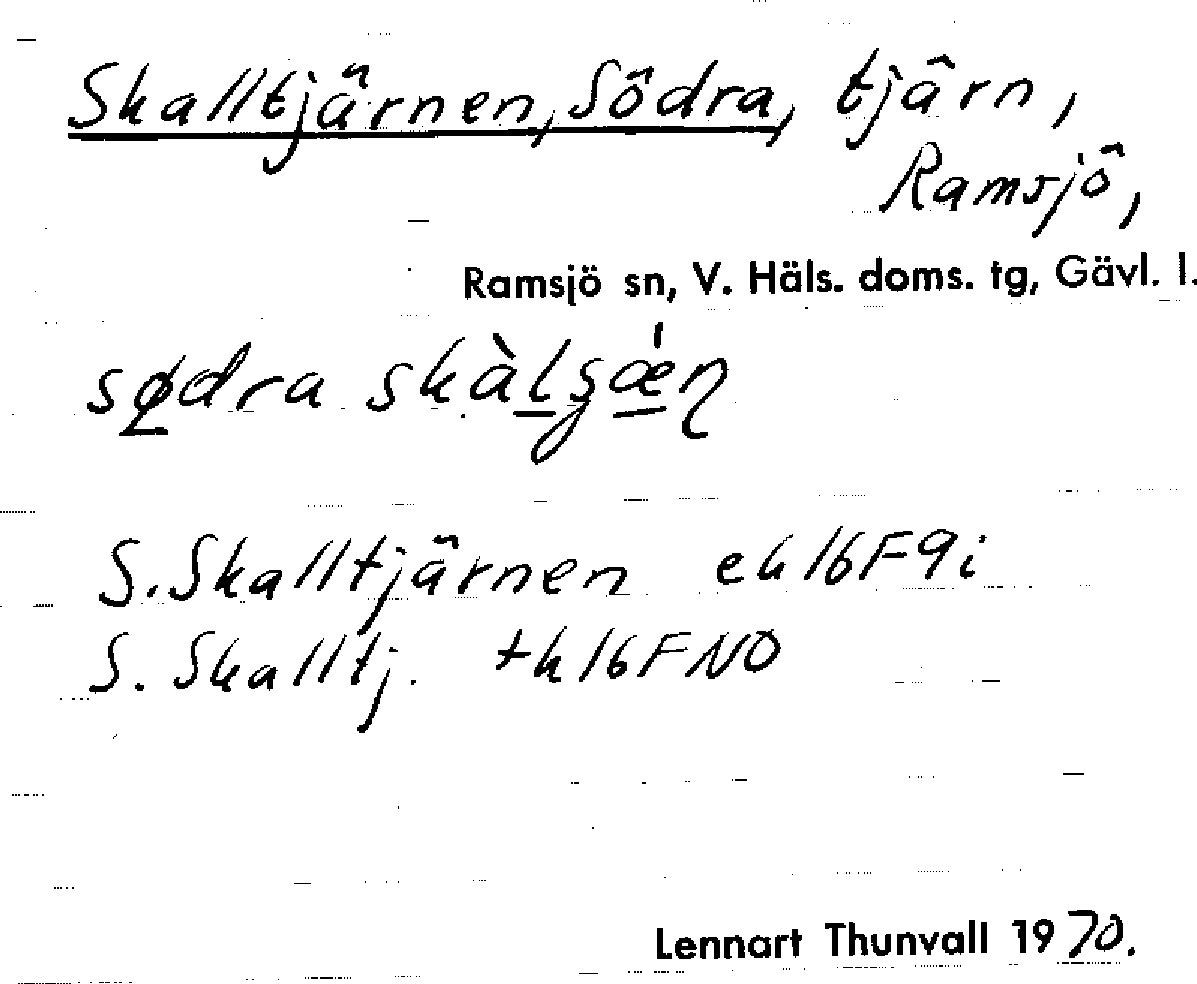 Skalltjärnen, Södra, tjärn,
Ramsjö,
Ramsjö sn, V. Häls. doms. tg, Gävl. l.
södra
S. Skalltjärnen ek 16F9i
S. Skalltj. tk 16FNO
Lennart Thunvall 1970.